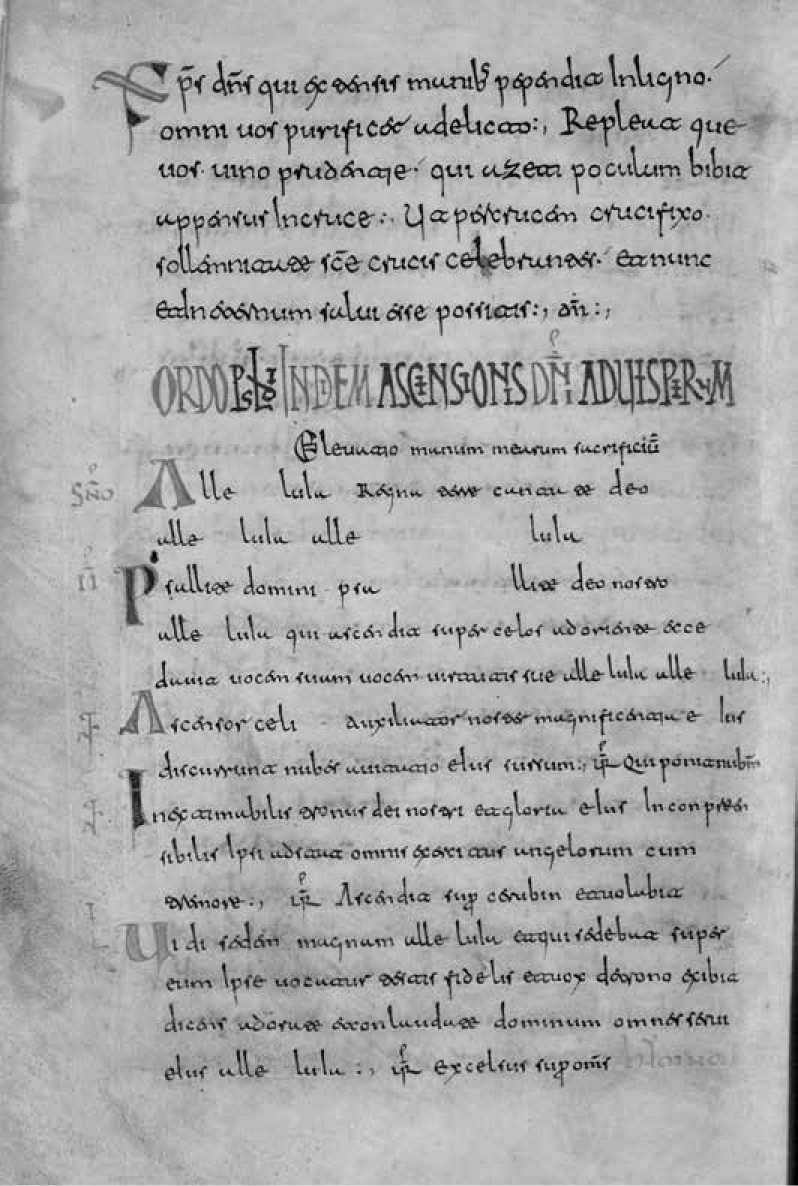 Xps dns qui extensis manibs pependit In ligno.
omni uos purificet a delicto:, Repleat que
uos. uino prudentie. qui azeti poculum bibit
appensus In cruce:. Ut crucifixo.
sollemnitate sce crucis celebrantes. et nunc
et In eternum salui esse possitis:, am:,
ORDO IN DIEM ASCENSIONIS DNI AD UESPERUM
Eleuatio manum mearum sacrificiu
SNO Alle luia Regna terre cantate deo
alle luia alle luia
II Psallite domini psa llite deo nostro
alle luia qui ascendit super celos ad oriente ecce
dauit uocem suam uocem uirtutis sue alle luia alle luia:,
Ascensor celi auxiliator noster magnificentia e Ius
discurrunt nubes eIus sursum:, VR Qui ponit nubm
Inextimabilis tronus dei nostri et gloria eIus Inconpreen
sibilis Ipsi adstat omnis exercitus angelorum cum
tremore:, VR Ascendit sup cerubin et uolabit
Uidi sedem magnam alle luia et qui sedebat super
eum Ipse uocatur testis fidelis et uox de trono exibit
dicens adorate et conlaudate dominum omnes serui
eIus alle luia:, VR Excelsus sup oms